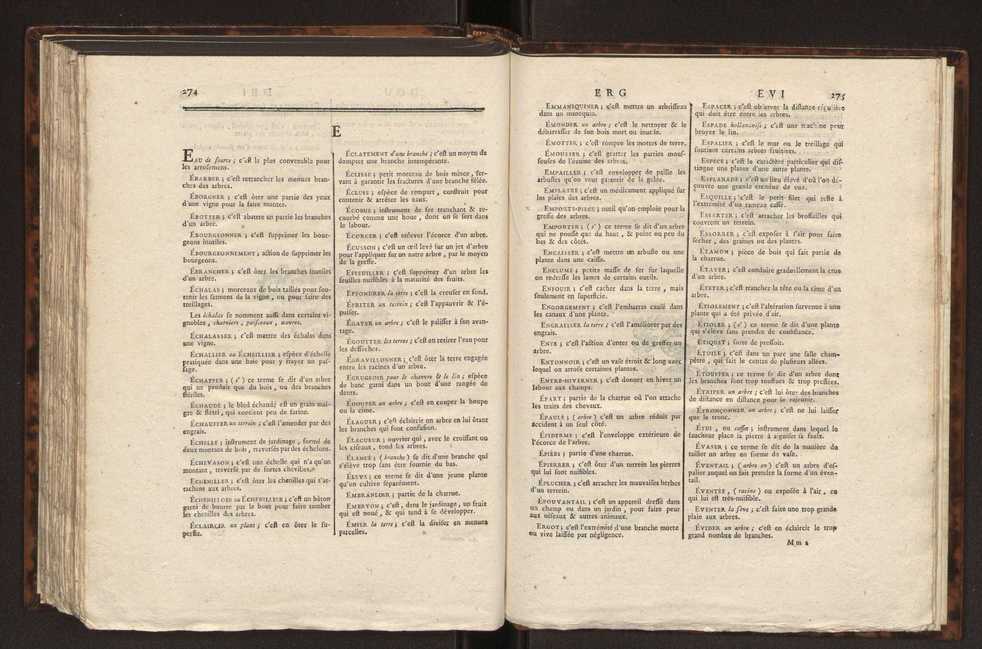 274
E
EAU de source ; c'est la plus convenable pour
les arrosemens.
ÉBARBER ; c'est retrancher les menues bran-
ches des arbres.
ÉBORGNER ; c'est ôter une partie des yeux
d'une vigne pour la faire monter.
ÉBOTTER ; c'est abattre un partie les branches
d'un arbre.
ÉBOURGEONNER ; c'est supprimer les bour-
geons inutiles.
ÉBOURGEONNEMENT ; action de supprimer les
bourgeons.
ÉBRANCHER ; c'est ôter les branches inutiles
d'un arbre.
ÉCHALAS ; morceaux de bois taillés pour sou-
tenir les sarmens de la vigne , ou pour faire des
treillages.
Les échalas se nomment aussi dans certains vi-
gnobles , charniers , paisseaux , œuvres.
ÉCHALASSER ; c'est mettre des échalas dans
une vigne.
ÉCHALLIER ou ÉCHELLIER ; espèce d'échelle
pratiquée dans une haie pour y frayer un pas-
sage.
ÉCHAPPER ; ( s' ) ce terme se dit d'un arbre
qui ne produit que du bois , ou des branches
stériles.
ÉCHAUDÉ ; le bled échaudé est un grain mai-
gre & flétri , qui contient peu de farine.
ÉCHAUFFER un terrein ; c'est l'amender par des
engrais.
ÉCHELLE ; instrument de jardinage , formé de
deux montans de bois , traversés par des échelons.
ÉCHEVASON ; c'est une échelle qui n'a qu'un
montant , traversé par de fortes chevilles.
ÉCHENILLER ; c'est ôter les chenilles qui s'at-
tachent aux arbres.
ÉCHENILLOIR ou ÉCHENILLIER ; c'est un bâton
garni de bourre par le bout pour faire tomber
les chenilles des arbres.
ÉCLAIRCIR un plant ; c'est en ôter le su-
perflu.
ÉCLATEMENT d'une branche ; c'est un moyen de
dompter une branche intempérante.
ÉCLISSE ; petit morceau de bois mince , ser-
vant à garantir les fractures d'une branche fêlée.
ÉCLUSE ; espèce de rempart , construit pour
contenir & arrêter les eaux.
ÉCOBUE ; instrument de fer tranchant & re-
courbé comme une houe , dont on se sert dans
le labour.
ÉCORCER ; c'est enlever l'écorce d'un arbre.
ÉCUSSON ; c'est un œil levé sur un jet d'arbre
pour l'appliquer sur un autre arbre , par le moyen
de la greffe.
EFFEUILLER ; c'est supprimer d'un arbre les
feuilles nuisibles à la maturité des fruits.
EFFONDRER la terre ; c'est la creuser en fond.
EFRITER un terrein ; c'est l'appauvrir & l'é-
puiser.
ÉGAYER un arbre ; c'est le palisser à son avan-
tage.
ÉGOUTTER les terres ; c'est en retirer l'eau pour
les dessécher.
ÉGRAVILLONNER ; c'est ôter la terre engagée
entre les racines d'un arbre.
EGRUGEOIR pour le chanvre & le lin ; espèce
de banc garni dans un bout d'une rangée de
dents.
ÉHOUPPER un arbre ; c'est en couper la houpe
ou la cime.
ÉLAGUER ; c'est éclaircir un arbre en lui ôtant
les branches qui font confusion.
ÉLAGUEUR ; ouvrier qui , avec le croissant ou
les ciseaux , tond les arbres.
ÉLANCÉ ; ( branche ) se dit d'une branche qui
s'élève trop sans être fournie du bas.
ÉLEVE ; ce terme se dit d'une jeune plante
qu'on cultive séparément.
EMBRANLOIR ; partie de la charrue.
EMBRYON ; c'est , dans le jardinage , un fruit
qui est noué , & qui tend à se développer.
ÉMIER la terre ; c'est la diviser en menues
parcelles.
ERG
EMMANEQUINER ; c'est mettre un arbrisseau
dans un manequin.
ÉMONDER un arbre ; c'est le nettoyer & le
débarrasser de son bois mort ou inutile.
ÉMOTTER ; c'est rompre les mottes de terre.
ÉMOUSSER ; c'est gratter les parties mous-
seuses de l'écorce des arbres.
EMPAILLER ; c'est envelopper de paille les
arbustes qu'on veut garantir de la gelée.
EMPLATRE ; c'est un médicament appliqué sur
les plaies des arbres.
EMPORTE-PIECE ; outil qu'on emploie pour la
greffe des arbres.
EMPORTER ; ( s' ) ce terme se dit d'un arbre
qui ne pousse que du haut , & point ou peu du
bas & des côtés.
ENCAISSER ; c'est mettre un arbuste ou une
plante dans une caisse.
ENCLUME ; petite masse de fer sur laquelle
on redresse les lames de certains outils.
ENFOUIR ; c'est cacher dans la terre , mais
seulement en superficie.
ENGORGEMENT ; c'est l'embarras causé dans
les canaux d'une plante.
ENGRAISSER la terre ; c'est l'améliorer par des
engrais.
ENTE ; c'est l'action d'enter ou de greffer un
arbre.
ENTONNOIR ; c'est un vase étroit & long avec
lequel on arrose certaines plantes.
ENTRE-HIVERNER ; c'est donner en hiver un
labour aux champs.
ÉPART ; partie de la charrue où l'on attache
les traits des chevaux.
ÉPAULÉ ; ( arbre ) c'est un arbre réduit par
accident à un seul côté.
ÉPIDERME ; c'est l'enveloppe extérieure de
l'écorce de l'arbre.
ÉPIÉES ; partie d'une charrue.
ÉPIERRER ; c'est ôter d'un terrein les pierres
qui lui sont nuisibles.
ÉPLUCHER ; c'est arracher les mauvaises herbes
d'un terrein.
ÉPOUVANTAIL ; c'est un appareil dressé dans
un champ ou dans un jardin , pour faire peur
aux oiseaux & autres animaux.
ERGOT ; c'est l'extrémité d'une branche morte
ou vive laissée par négligence.
EVI
275
ESPACER ; c'est observer la distance requise
qui doit être entre les arbres.
ESPADE hollandoise ; c'est une machine pour
broyer le lin.
ESPALIER ; c'est le mur ou le treillage qui
soutient certains arbres fruitiers.
ESPECE ; c'est le caractère particulier qui dis-
tingue une plante d'une autre plante.
ESPLANADE ; c'est un lieu élevé d'où l'on dé-
couvre une grande étendue de vue.
ESQUILLE ; c'est le petit filet qui reste à
l'extrémité d'un rameau cassé.
ESSARTER ; c'est arracher les brossailles qui
couvrent un terrein.
ESSORRER ; c'est exposer à l'air pour faire
sécher , des graines ou des plantes.
ÉTAMON ; pièce de bois qui fait partie de
la charrue.
ÉTAYER ; c'est conduire graduellement la crue
d'un arbre.
ÉTETER ; c'est trancher la tête ou la cime d'un
arbre.
ÉTIOLEMENT ; c'est l'altération survenue à une
plante qui a été privée d'air.
ÉTIOLER ; ( s' ) ce terme se dit d'une plante
qui s'élève sans prendre de consistance.
ÉTIQUET ; sorte de pressoir.
ÉTOILE ; c'est dans un parc une salle cham-
pêtre , qui fait le centre de plusieurs allées.
ÉTOUFFER ; ce terme se dit d'un arbre dont
les branches sont trop touffues & trop pressées.
ÉTRIPER un arbre ; c'est lui ôter des branches
de distance en distance pour le rajeunir.
ÉTRONÇONNER un arbre ; c'est ne lui laisser
que le tronc.
ÉTUI , ou coffin ; instrument dans lequel le
faucheur place la pierre à aiguiser sa faulx.
ÉVASER ; ce terme se dit de la manière de
tailler un arbre en forme de vase.
ÉVENTAIL ; ( arbre en ) c'est un arbre d'es-
palier auquel on fait prendre la forme d'un éven-
tail.
ÉVENTÉE , ( racine ) ou exposée à l'air , ce
qui lui est très-nuisible.
EVENTER la séve ; c'est faire une trop grande
plaie aux arbres.
ÉVIDER un arbre ; c'est en éclaircir le trop
grand nombre de branches.
M m 2